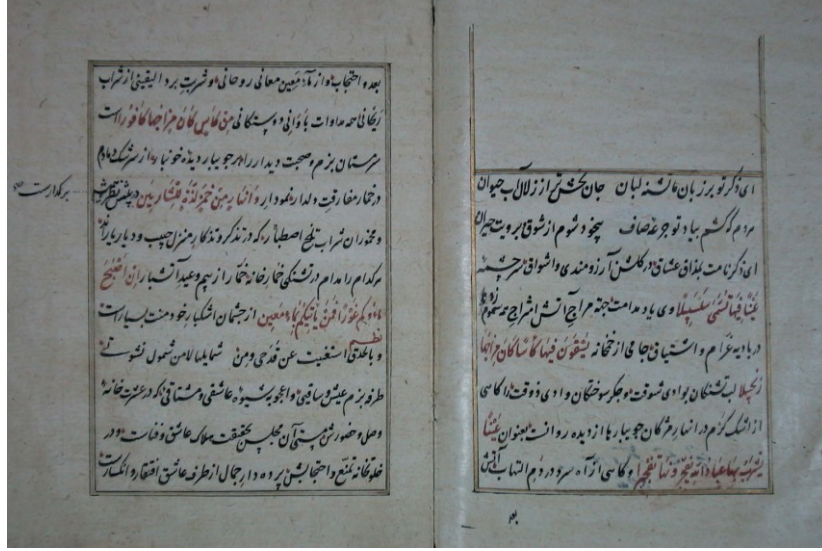 ای ذکر تو بر زبان ما تشنه لبان جان بخش تر از زلال آب حیوان
هر دم که کشم بیاد تو جرعهٔ صاف بیخود شوم از شوق برویت حیران
ای ذکر نامت بمذاق عشاق در گلشن آرزومندی و اشواق سرچشمه
عَیْنًا فیها تُسَمّی سَلْسَبیلًا وی یاد مدامت جهة مزاج آتش امتزاج مسموم
در بادیه غرام و اشتیاق جامی از خمخانه یُسْقَوْنَ فیها کَأْسًا کانَ مِزاجُها
زَنْجَبیلًا لب تشنگان بوادی شوقت و جگر سوختگان وادی ذوقت را کاسی
از اشک گرم در انهار مژگان جویبارها از دیده روانست بعنوان عَیْنًا
یَشْرَبُ بِها عِبادُ اللهِ یُفَجِّرُونَها تَفْجیرًا و کاسی از آه سرد در دم التهاب آتش
بعد
بعد و احتجاب و از ماء معین معانی روحانی و شربت برد الیقینی از شراب
ریحانی احمد مداوات باوانی و مِنْ کَأْسٍ کانَ مِزاجُها کافُورًا است
سرمستان بزم وصحبت دیدار را هر جویبار دیده خونبار از سرشک دمادم
در خمار مفارقت دلدار نمودار وَ اَنْهارٍ مِنْ خَمْرٍ لَذَّةٍ لِلشّارِبینَ در پیش نظر
هر کدام است
و مخموران شراب تلخ اصطبار که در تذکر و تذکار منزل حبیب و دیار یارند
هر کدام را مدام در تشنگی خمار خانه خمّار از بیم وعید آتشبار إِنْ أَصْبَحَ
ماؤُکُمْ غَوْرًا فَمَنْ یَأْتیکُمْ بِماءٍ مَعینٍ از چشمان اشکبار خود منت بسیار است
نظم
و بالحدق استغنیت عن قدحی ومن شمایلها لا من شمولی نشوتی
طرفه بزم عیش و ساقیی و اعجوبه شیوه عاشقی و مشتاقی که در عشرت خانه
وصل و حضورش مستی آن مجلس بحقیقت هلاک عاشق و فناست و در
خلوتخانه تمنّع و احتجابش پرده دار جمال از طرف عاشق افتقار و انکسار است